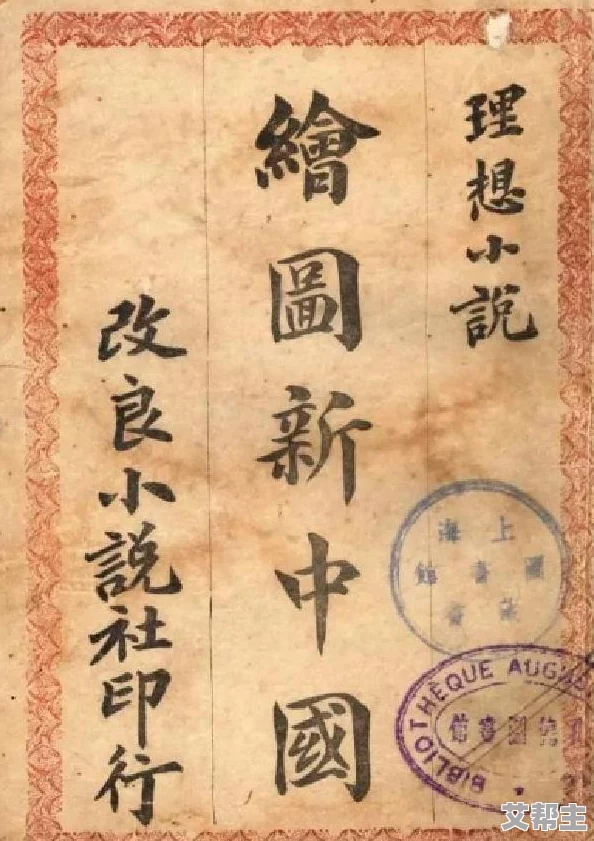 理想小説
繪圖新中國
改良小説社印行
上海
圖書館
藏書
BIBLIOTHÈQUE AUG
圖書館
艾帮主